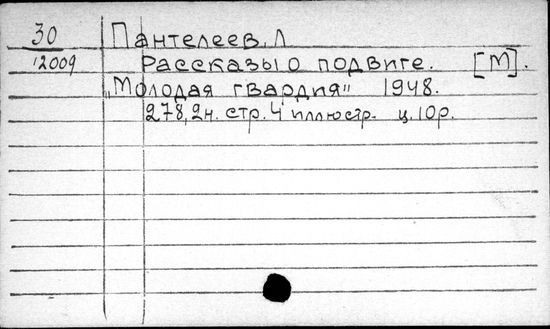 30 Пантелеев, Л
12009 Рассказы о подвиге. [М].
„Молодая гвардия" 1948.
278, 2н. стр. 4 иллюстр. ц. 10р.